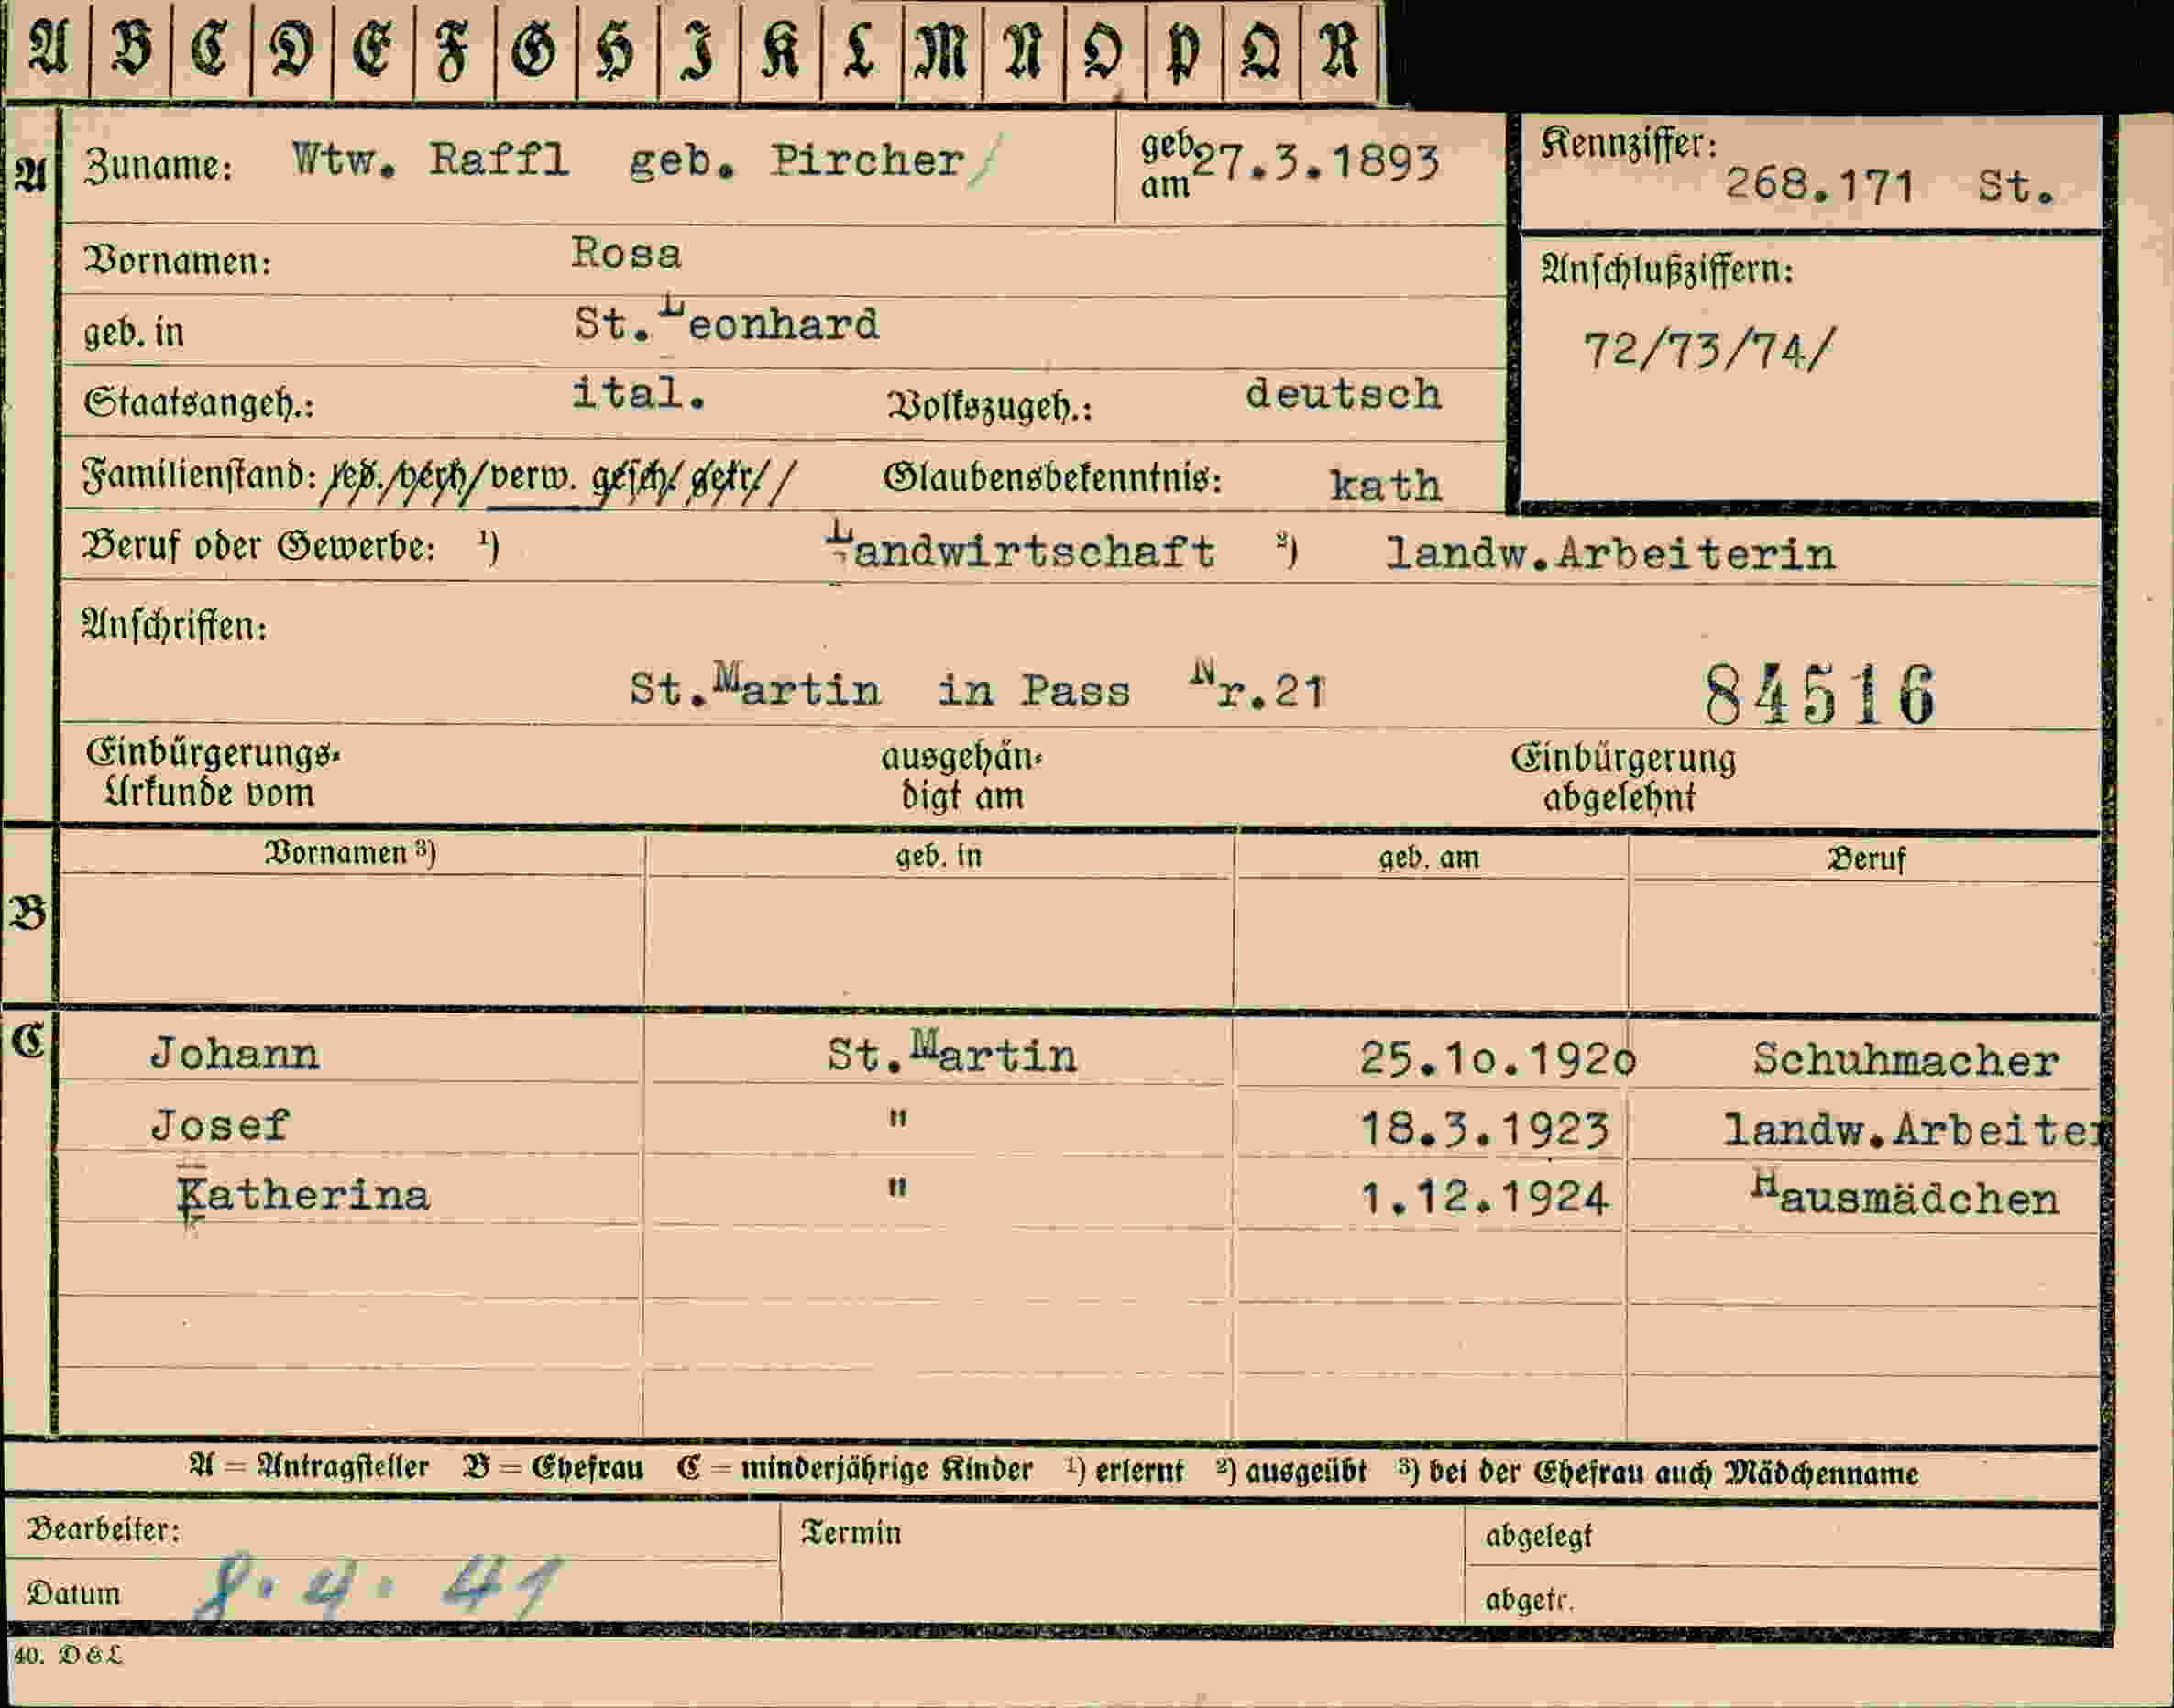 A B C D E F G H I K L M N O P Q R
A Zuname: Wtw. Raffl geb. Pircher/ geb. am 27.3.1893 Kennziffer: 268.171 St.
Vornamen: Rosa
geb. in St.Leonhard
Anschlußziffern:
72/73/74/
Staatsangeh.: ital. Volkszugeh.: deutsch
Familienstand: led./verh/verw. gesch/ getr// Glaubensbekenntnis: kath
Beruf oder Gewerbe: ¹) Landwirtschaft ²) landw.Arbeiterin
Anschriften:
St.Martin in Pass Nr.21 84516
Einbürgerungs- ausgehän- Einbürgerung
Urkunde vom digt am abgelehnt
B Vornamen ³) geb. in geb. am Beruf
C Johann St.Martin 25.10.1920 Schuhmacher
Josef " 18.3.1923 landw.Arbeiter
Katherina " 1.12.1924 Hausmädchen
A = Antragsteller B = Ehefrau C = minderjährige Kinder ¹) erlernt ²) ausgeübt ³) bei der Ehefrau auch Mädchenname
Bearbeiter: Termin abgelegt
Datum 8. 4. 41 abgetr.
40. D&L